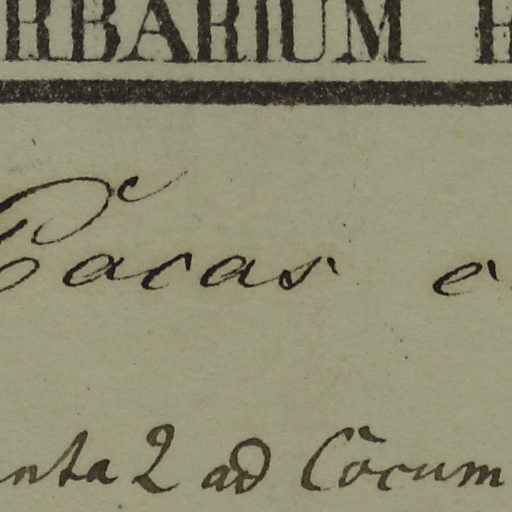 RBARIUM H
Cacas c
nta 2 ad Cōcum